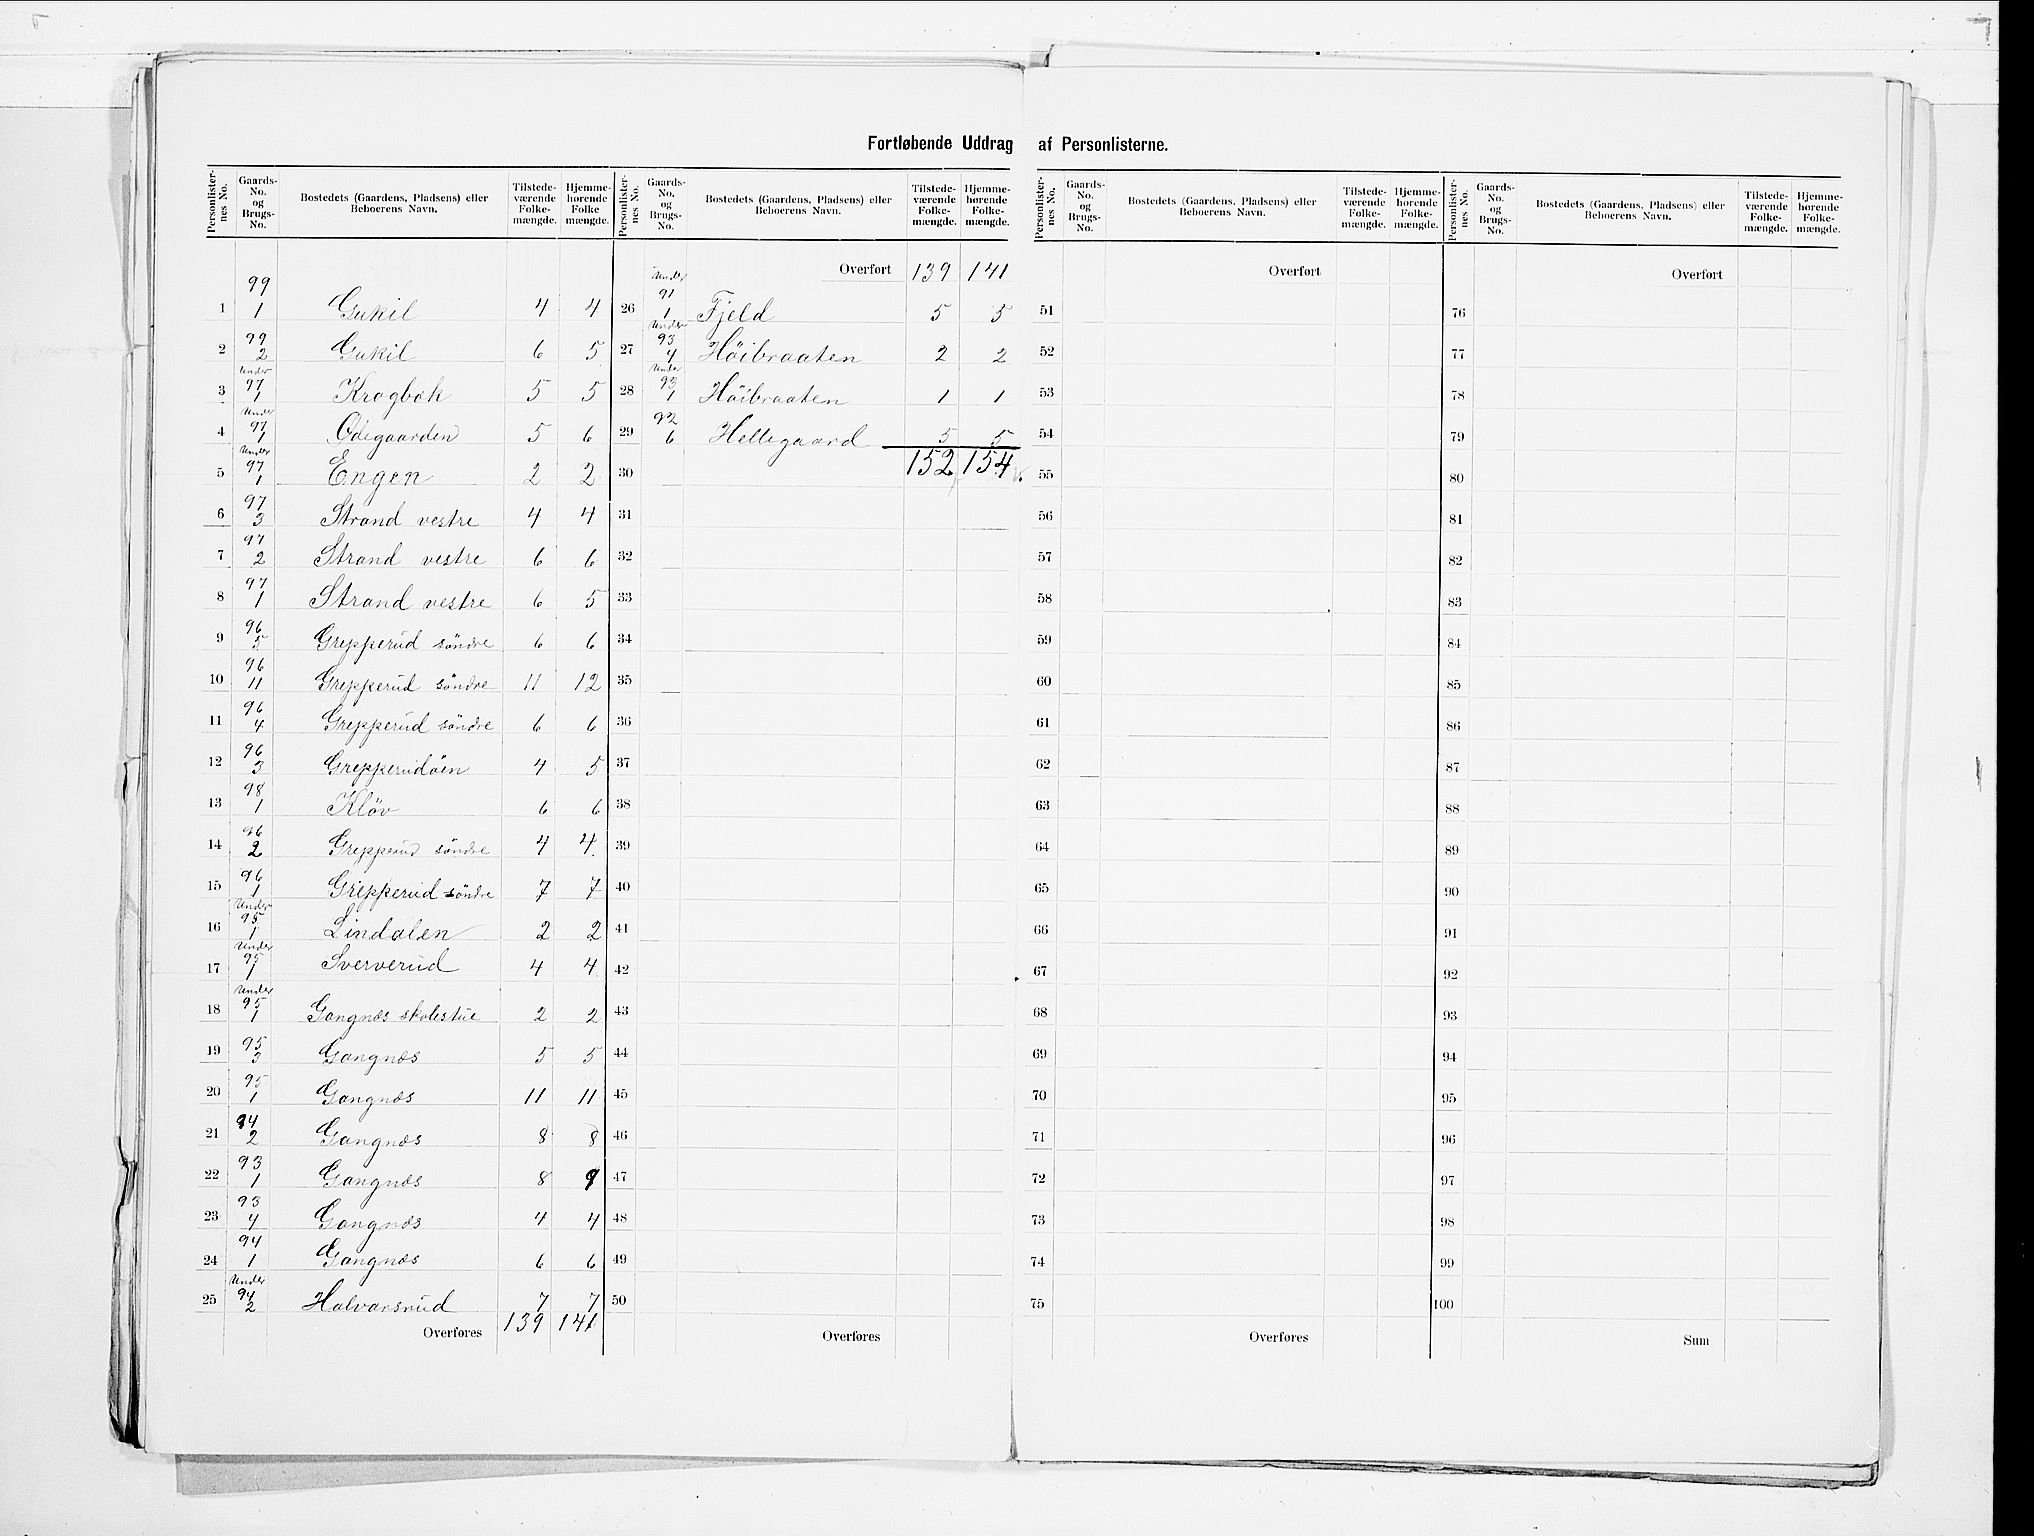 Fortløbende Uddrag af Personlisterne.
Personlister-nes No. Gaards-No. og Brugs-No. Bostedets (Gaardens, Pladsens) eller Beboerens Navn. Tilstede-værende Folke-mængde. Hjemme-hørende Folke mængde.
1 99 1 Gukil 4 4
2 99 2 Gukil 6 5
3 Under 97 1 Krogbæk 5 5
4 Under 97 1 Ödegaarden 5 6
5 Under 97 1 Engen 2 2
6 97 3 Strand vestre 4 4
7 97 2 Strand vestre 6 6
8 97 1 Strand vestre 6 5
9 96 5 Grepperud söndre 6 6
10 96 11 Grepperud söndre 11 12
11 96 4 Grepperud söndre 6 6
12 96 3 Grepperudöen 4 5
13 98 1 Klöv 6 6
14 96 2 Grepperud söndre 4 4
15 96 1 Grepperud söndre 7 7
16 Under 95 1 Lindalen 2 2
17 Under 95 1 Sververud 4 4
18 Under 95 1 Gangnæs skolestue 2 2
19 95 3 Gangnæs 5 5
20 95 1 Gangnæs 11 11
21 94 2 Gangnæs 8 8
22 93 1 Gangnæs 8 9
23 93 4 Gangnæs 4 4
24 94 1 Gangnæs 6 6
25 Under 94 2 Halvorsrud 7 7
Overføres 139 141
Personlister-nes No. Gaards-No. og Brugs-No. Bostedets (Gaardens, Pladsens) eller Beboerens Navn. Tilstede-værende Folke-mængde. Hjemme-hørende Folke-mængde.
Overført 139 141
26 Under 91 1 Fjeld 5 5
27 Under 93 4 Höibraaten 2 2
28 Under 93 1 Höibraaten 1 1
29 92 6 Hellegaard 5 5
30 152 154
31
32
33
34
35
36
37
38
39
40
41
42
43
44
45
46
47
48
49
50
Overføres
Personlister-nes No. Gaards-No. og Brugs-No. Bostedets (Gaardens, Pladsens) eller Beboerens Navn. Tilstede-værende Folke-mængde. Hjemme-hørende Folke-mængde.
Overført
51
52
53
54
55
56
57
58
59
60
61
62
63
64
65
66
67
68
69
70
71
72
73
74
75
Overføres
Personlister-nes No. Gaards-No. og Brugs-No. Bostedets (Gaardens, Pladsens) eller Beboerens Navn. Tilstede-værende Folke-mængde. Hjemme-hørende Folke-mængde.
Overført
76
77
78
79
80
81
82
83
84
85
86
87
88
89
90
91
92
93
94
95
96
97
98
99
100
Sum